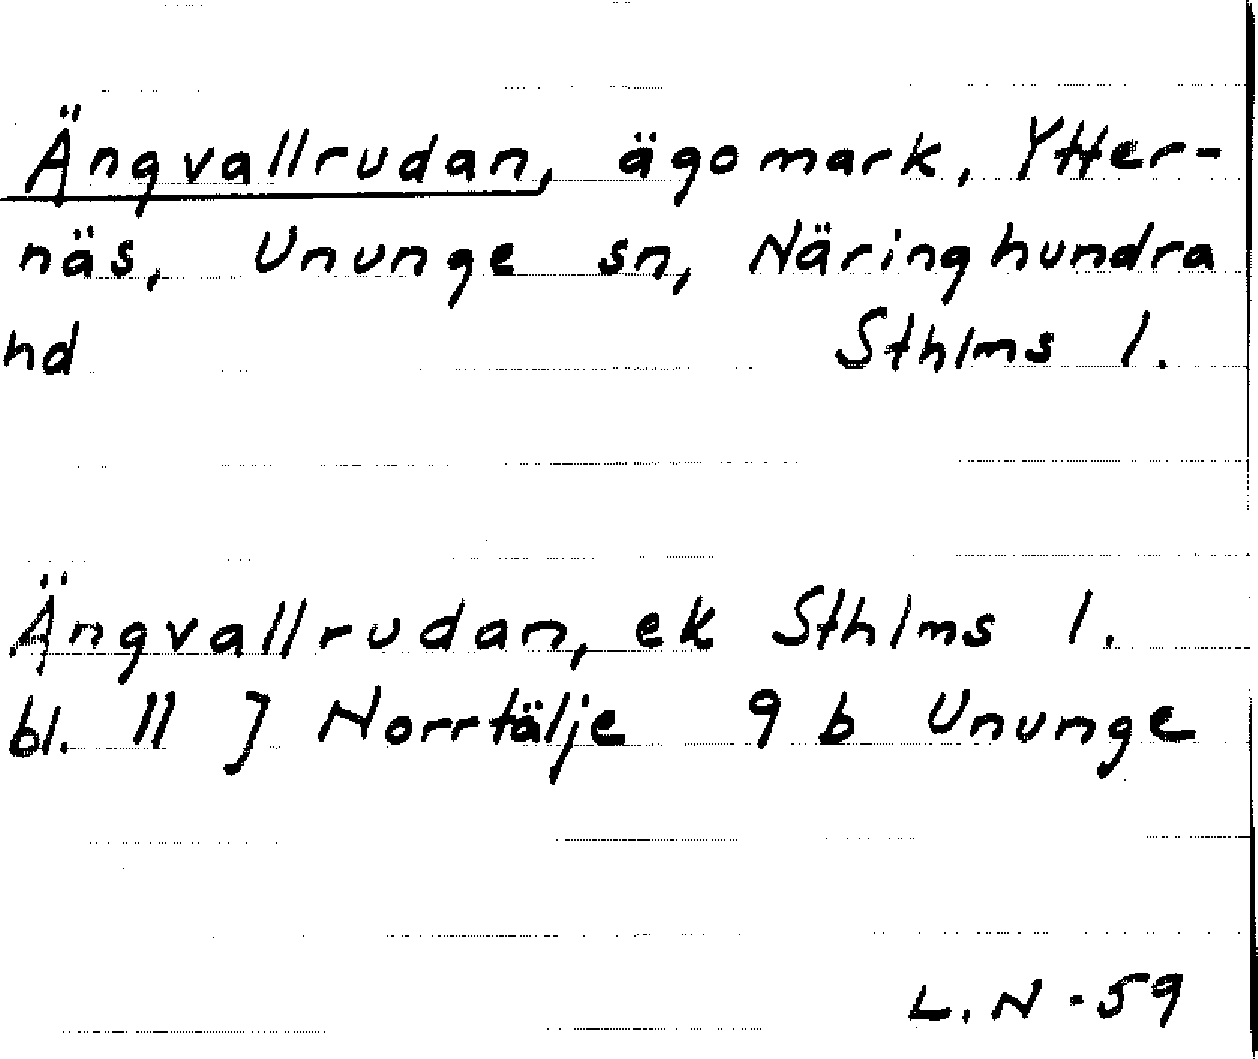 Ängvallrudan, ägomark, Ytter-
näs, Ununge sn, Näringhundra
hd Sthlms l.
Ängvallrudan, ek Sthlms l.
bl. 11 J Norrtälje 9 b Ununge
L.N -59